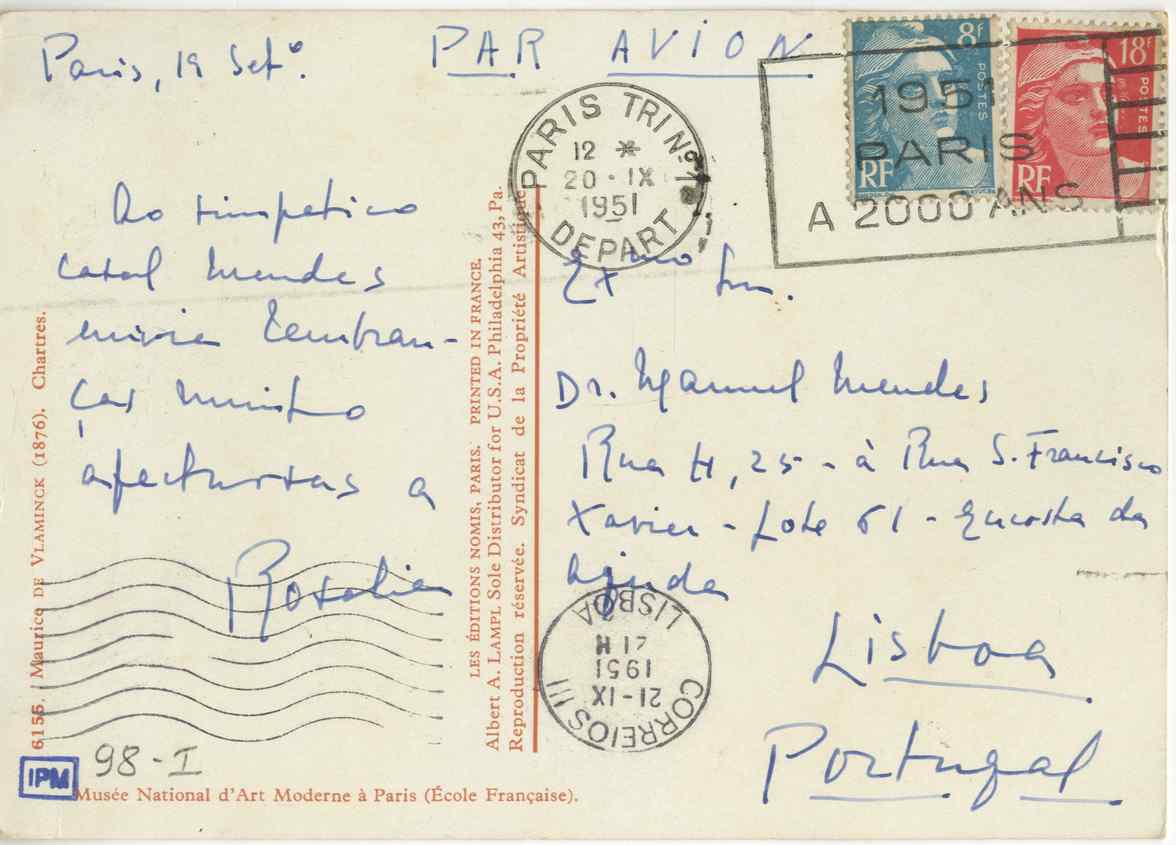 Paris, 19 Setº.
PAR AVION
8f
POSTES
RF
18f
POSTES
RF
1951
PARIS
A 2000 ANS
PARIS TRI Nº 1
12 *
20 - IX
1951
DEPART
Ao simpatico
casal Mendes
envia lembran-
ças muito
afectuosas a
Rosalia
6155. Maurice DE VLAMINCK (1876). Chartres.
LES ÉDITIONS NOMIS, PARIS. PRINTED IN FRANCE.
Albert A. LAMPL Sole Distributor for U.S.A. Philadelphia 43, Pa.
Reproduction réservée. Syndicat de la Propriété Artistique
Exmo Snr.
Dr. Manuel Mendes
Rua H, 25 - à Rua S. Francisco
Xavier - Lote 61 - Encosta da
Ajuda
Lisboa
Portugal
CORREIOS III
21-IX
1951
21 H
LISBOA
IPM
98-I
Musée National d'Art Moderne à Paris (École Française).